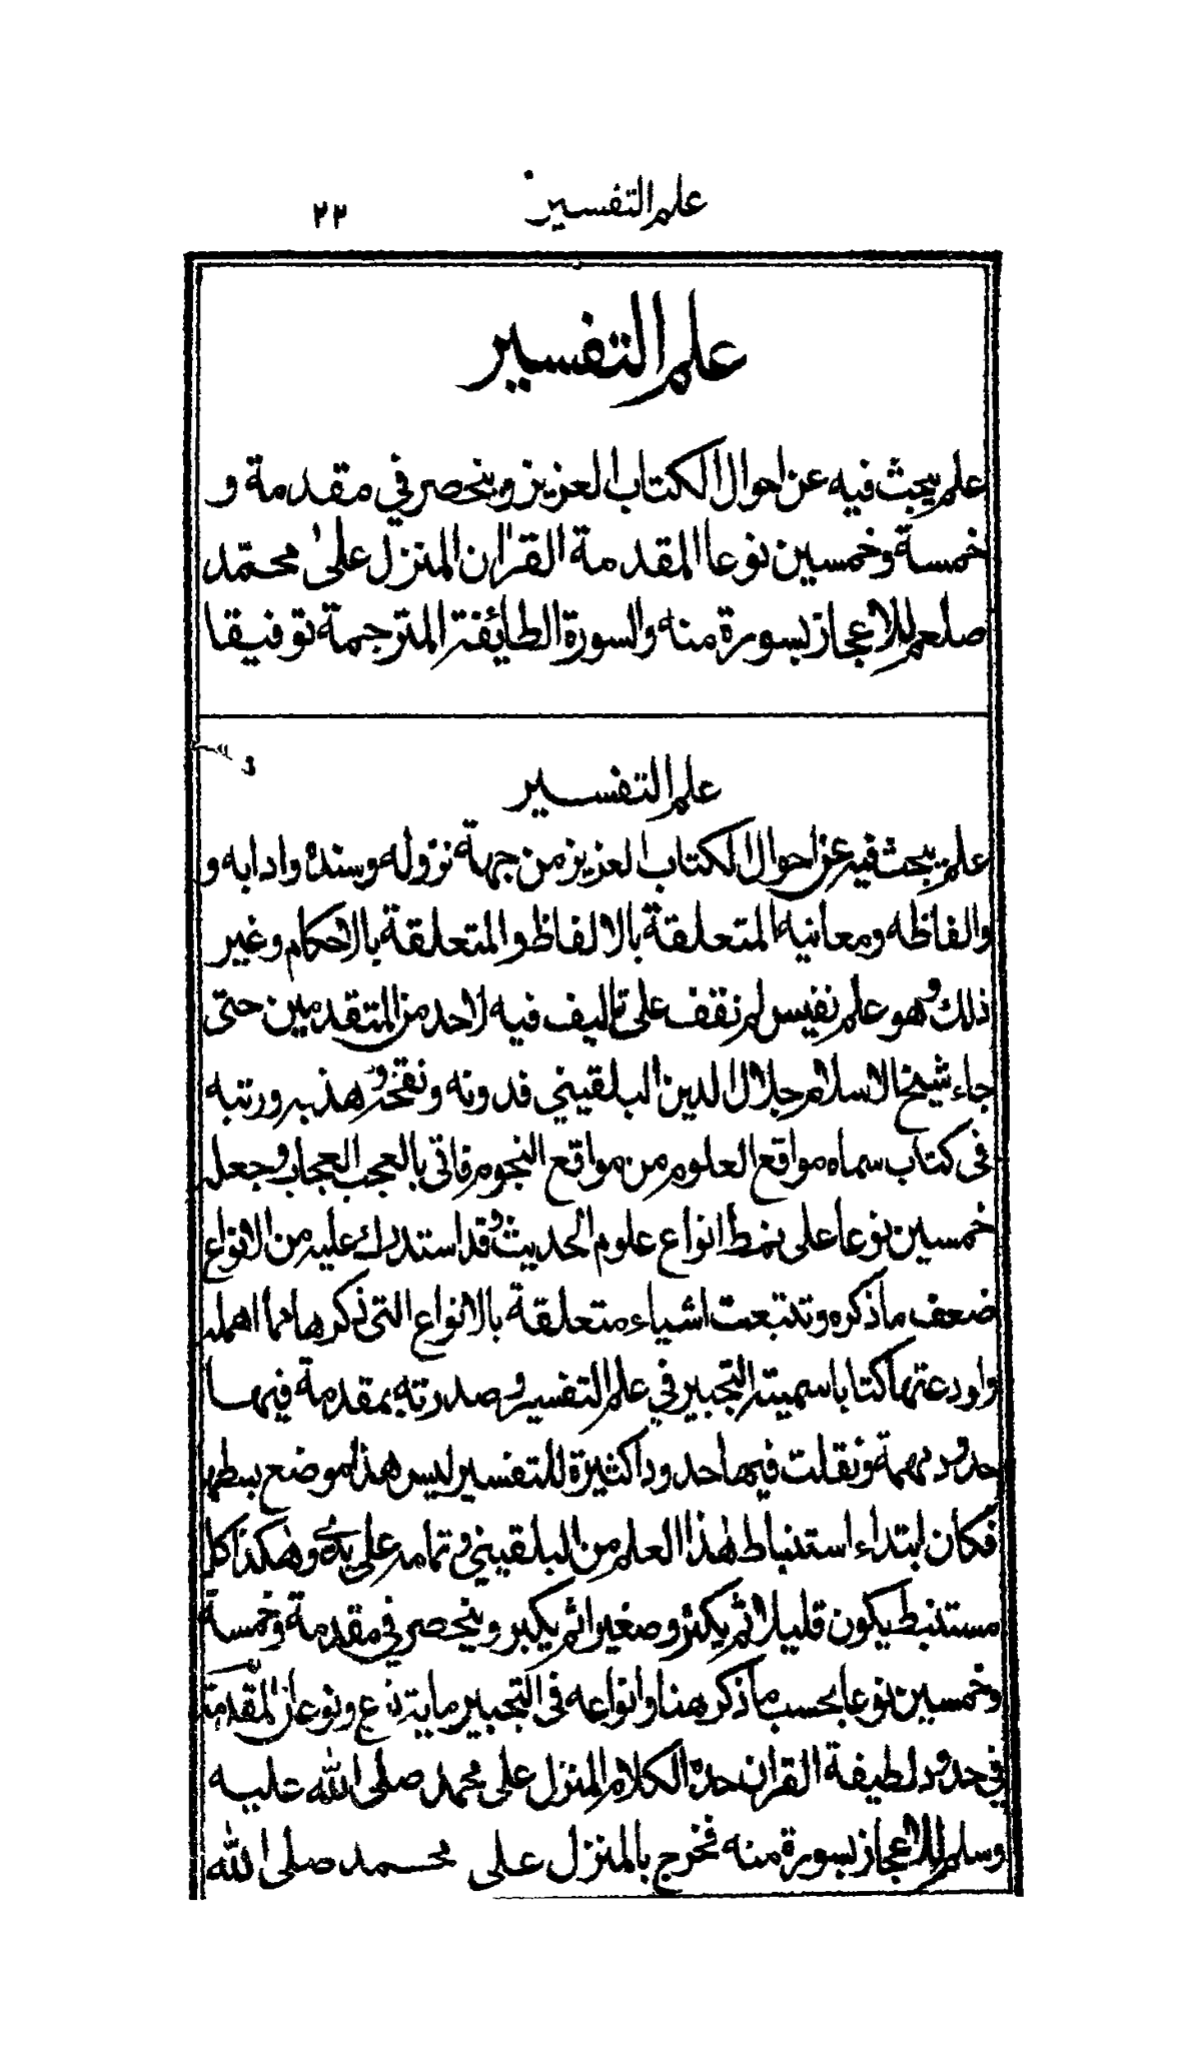 علم التفسير ٢٣
علم التفسير
علم يبحث فيه عن احوال الكتاب العزيز وينحصر في مقدمة و
خمسة وخمسين نوعا المقدمة القران المنزل على محمّد
صلعم للاعجاز بسورة منه والسورة الطائفة المترجمة توقيفا
علم التفسير
علم يبحث فيه عن احوال الكتاب العزيز من جهة نزوله وسنده وادابه و
والفاظه ومعانيه المتعلقة بالالفاظ والمتعلقة بالاحكام وغير
ذلك وهو علم نفيس لم نقف على تاليف فيه لاحد من المتقدمين حتى
جاء شيخ الاسلام جلال الدين البلقيني فدونه ونقحه وهذبه ورتبه
فى كتاب سماه مواقع العلوم من مواقع النجوم فاتى بالعجب العجاب وجعله
خمسين نوعا على نمط انواع علوم الحديث وقد استدرك عليه من الانواع
ضعف ما ذكره وتتبعت اشياء متعلقة بالانواع التى ذكرها مما اهمله
واودعتها كتابا سميته التحبير في علم التفسير وصدرته بمقدمة فيها
حدود مهمة ونقلت فيها حدودا كثيرة للتفسير ليس هذا موضع بسطها
فكان ابتداء استنباط هذا العلم من البلقيني وتمامه على يدي وهكذا كل
مستنبط يكون قليلا ثم يكثر وصغيرا ثم يكبر وينحصر في مقدمة وخمسة
وخمسين نوعا بحسب ما ذكر هنا وانواعه فى التحبير ماية نوع ونوعان المقدمة
في حدود لطيفة القران حده الكلام المنزل على محمد صلى الله عليه
وسلم للاعجاز بسورة منه فخرج بالمنزل على محمد صلى الله